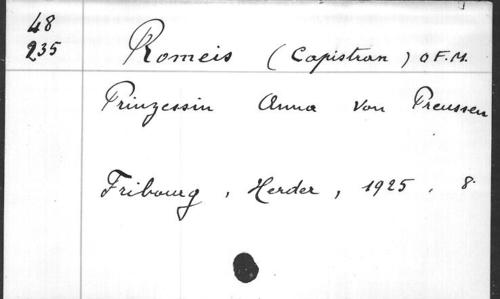 48
235
Romeis (Capistran) O F.M.
Prinzessin Anna von Preussen
Fribourg, Herder, 1925. 8.